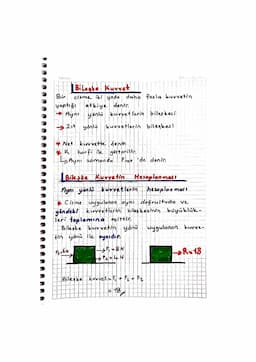 Bileşke Kuvvet
Bir cisme iki yada daha fazla kuvvetin
yaptığı etkiye denir.
→ Aynı yönlü kuvvetlerin bileşkesi
→ Zıt yönlü kuvvetlerin bileşkesi
* Net kuvvette denir.
* R harfi ile gösterilir.
↳ Aynı zamanda Fnet 'de denir.
Bileşke Kuvvetin Hesaplanması
Aynı yönlü kuvvetlerin hesaplanması
* Cisme uygulanan aynı doğrultuda ve
yöndeki kuvvetlerin bileşkesinin büyüklük-
leri toplamına eşittir.
Bileşke kuvvetin yönü uygulanan kuvve-
tin yönü ile aynıdır.
R=18
Bileşke kuvvet=F₁ + F₂ + F₃
= 18